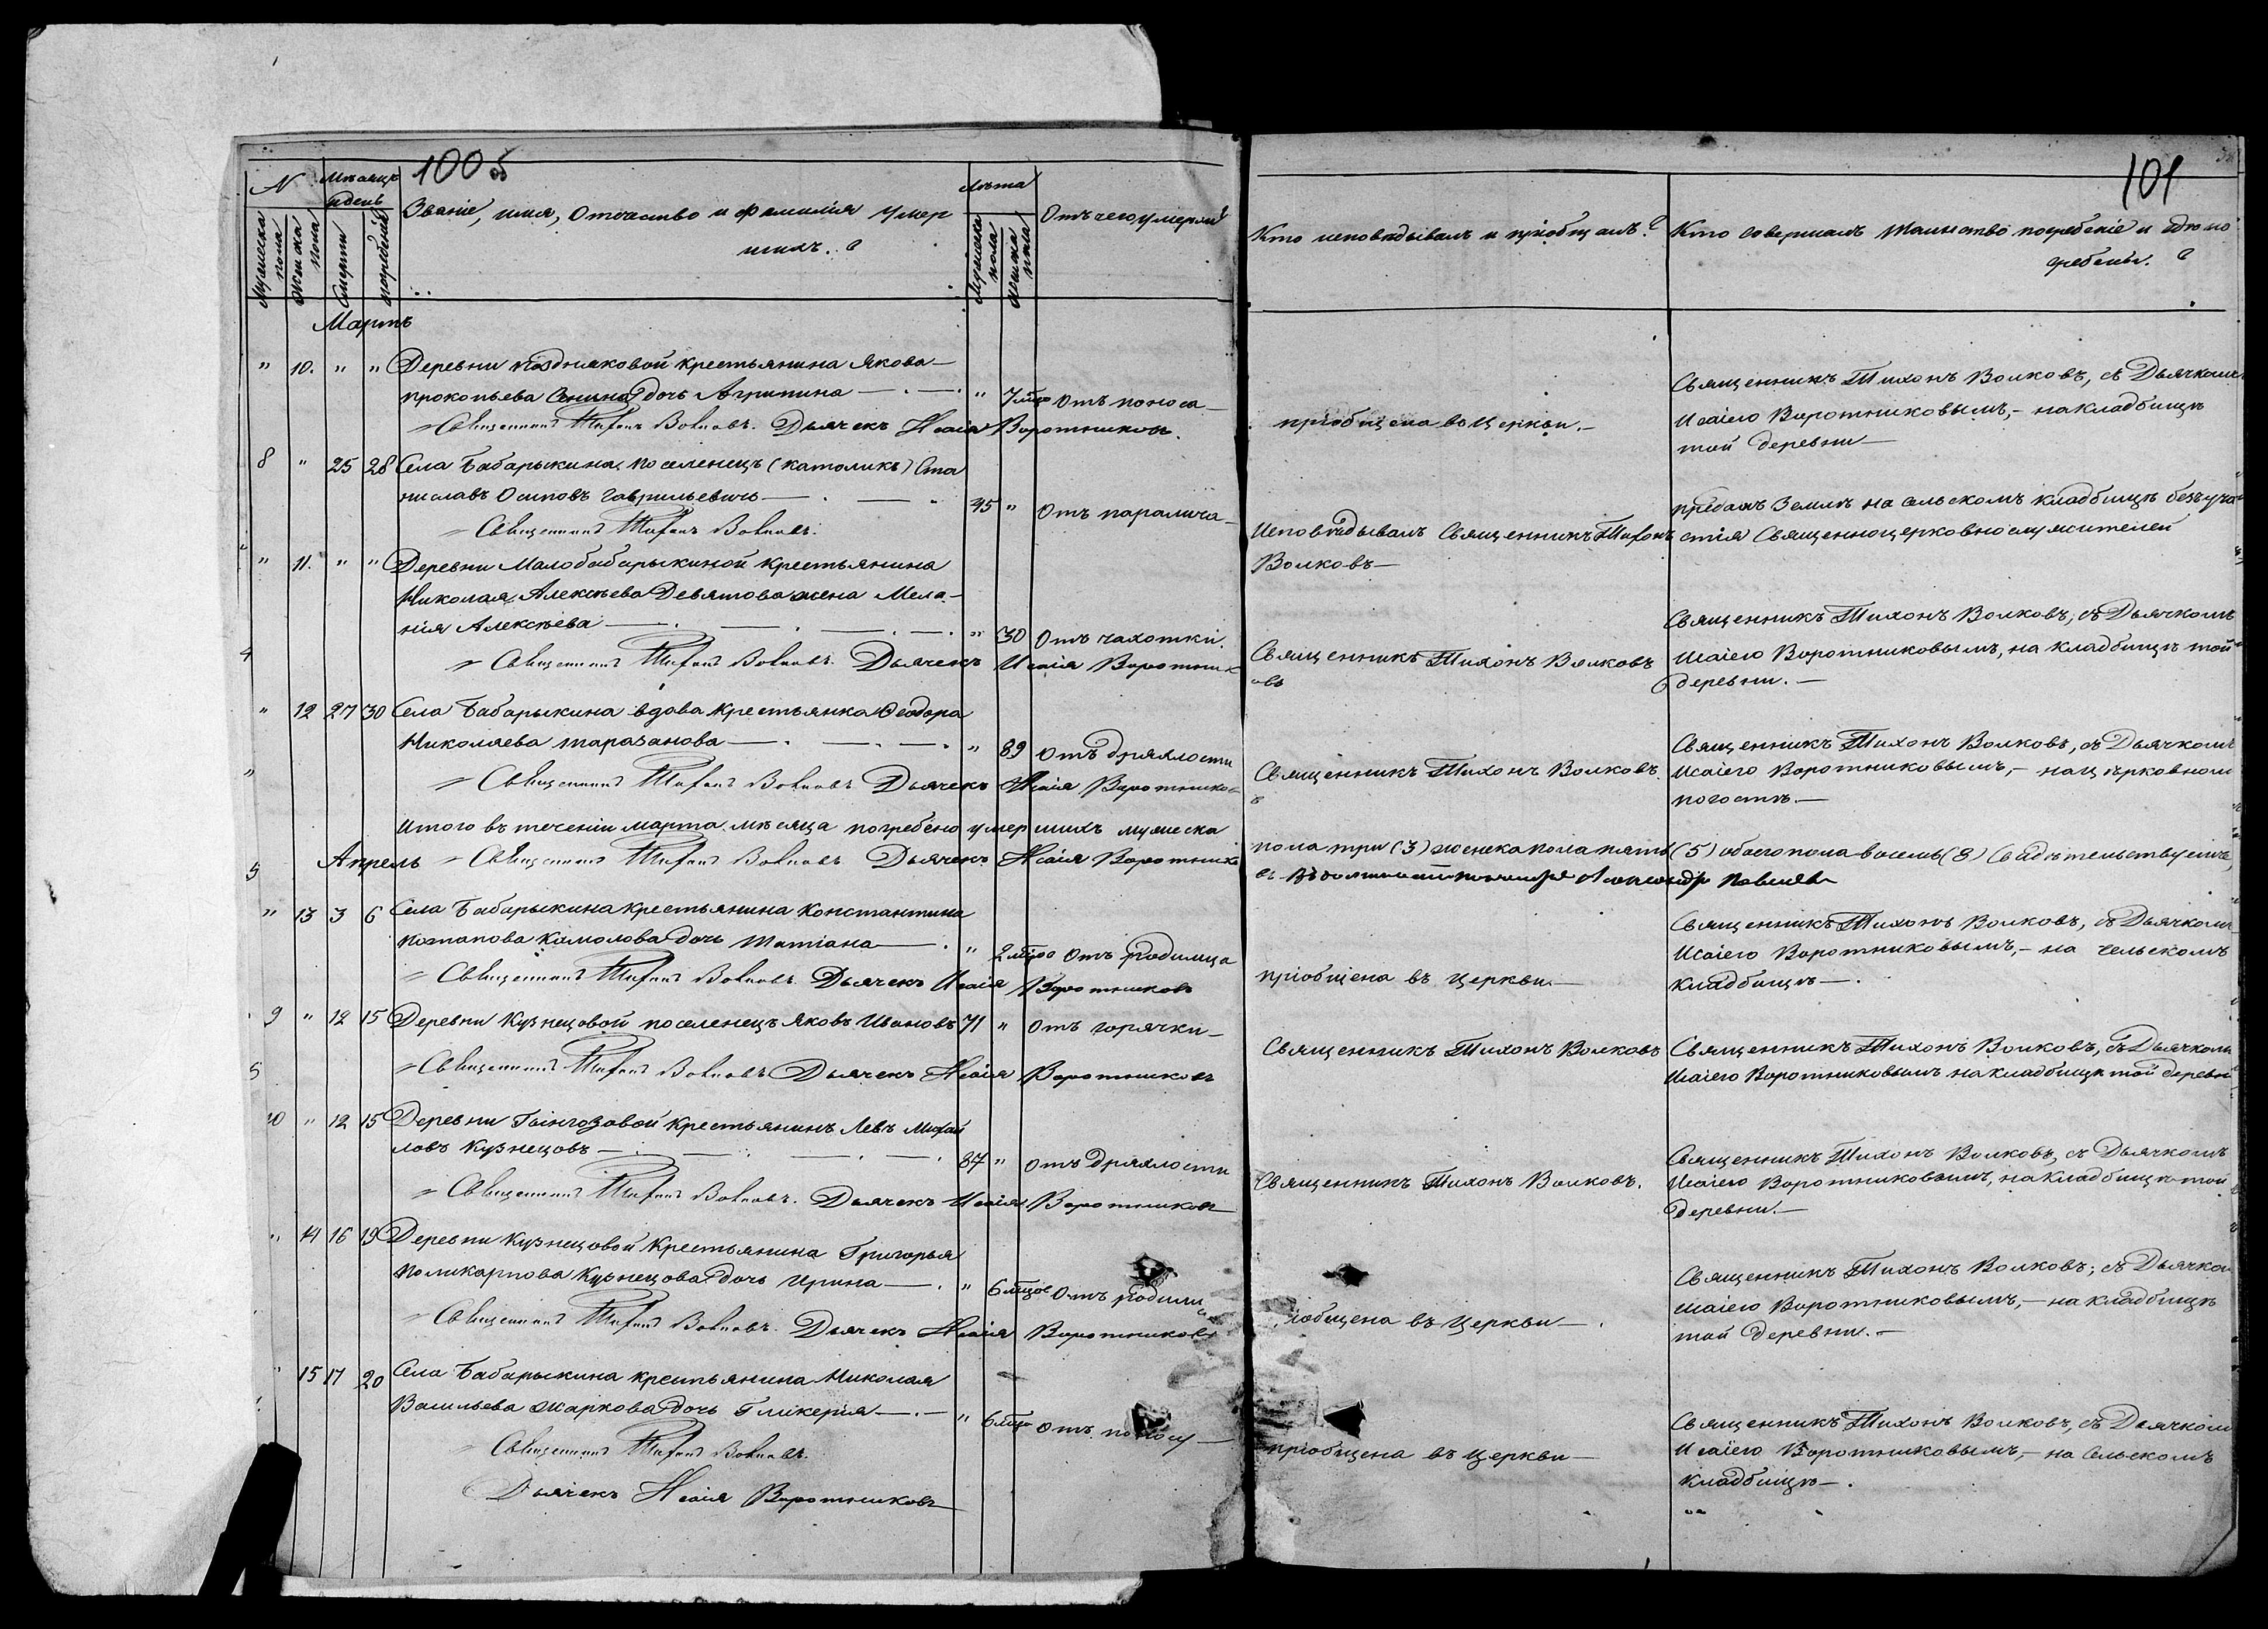 100 об
N
Мѣсяцъ
и день
Мужеска пола
Женска пола
Смерти
погребенія
Званіе, имя, Отчество и фамилія умер
шихъ.
Лѣта
Мужеска пола
Женска пола
Отъ чего умерли
Мартъ
" 10. " " Деревни Поздняковой крестьянина Якова
Прокопьева дочь Агрипина " 7 мцо Отъ поноса
Священникъ Тихонъ Волковъ. Дьячекъ Исаія Воротниковъ.
8 " 25 28 Села Бабарыкина, поселенецъ (католикъ) Ста
ниславъ Осиповъ Гаврильевичъ 45 " Отъ паралича
Священникъ Тихонъ Волковъ.
" 11. " " Деревни Малобабарыкиной крестьянина
Николая Алексѣева Девятова жена Мела-
нія Алексѣева " 30 Отъ чахотки.
Священникъ Тихонъ Волковъ. Дьячекъ Исаія Воротник
овъ
" 12 27 30 Села Бабарыкина вдова крестьянка Ѳеодора
Николаева Тараканова " 89 Отъ дряхлости
Священникъ Тихонъ Волковъ. Дьячекъ Исаія Воротнико
в
Итого въ теченіи марта мѣсяца погребено умершихъ мужеска
Апрель Священникъ Тихонъ Волковъ Дьячекъ Исаія Воротнико
въ
" 13 3 6 Села Бабарыкина крестьянина Константина
Потапова Камолова дочь Татіана " 2 мцо Отъ родимца
Священникъ Тихонъ Волковъ. Дьячекъ Исаія Воротниковъ
9 " 12 15 Деревни Кузнецовой поселенецъ Яковъ Ивановъ 71 " Отъ горячки
Священникъ Тихонъ Волковъ Дьячекъ Исаія Воротниковъ
10 " 12 15 Деревни крестьянинъ Левъ Михай
ловъ Кузнецовъ 87 " Отъ дряхлости
Священникъ Тихонъ Волковъ. Дьячекъ Исаія Воротниковъ
" 14 16 19 Деревни Кузнецовой крестьянина Григорья
Поликарпова Кузнецова дочь Ирина " 6 мцо Отъ родимца
Священникъ Тихонъ Волковъ. Дьячекъ Исаія Воротниковъ
" 15 17 20 Села Бабарыкина крестьянина Николая
Васильева Жаркова дочь Гликерія " 6 мцо Отъ поносу
Священникъ Тихонъ Волковъ.
Дьячекъ Исаія Воротниковъ
101
Кто исповѣдывалъ и пріобщалъ?
Кто совершалъ таинство погребеніе и гдѣ по
гребены.?
пріобщена въ Церкви.
Священникъ Тихонъ Волковъ, съ Дьячкомъ
Исаіею Воротниковымъ, на кладбищѣ
той деревни
Исповѣдывалъ Священникъ Тихонъ
Волковъ
преданъ землѣ на сельскомъ кладбищѣ безъ уча
стія Священноцерковнослужителей
Священникъ Тихонъ Волковъ
Священникъ Тихонъ Волковъ, съ Дьячкомъ
Исаіею Воротниковымъ, на кладбищѣ той
деревни.
Священникъ Тихонъ Волковъ.
Священникъ Тихонъ Волковъ, съ Дьячкомъ
Исаіею Воротниковымъ, на церковномъ
погостѣ.
пола три (3) женска пола пять (5) обоего пола восемь (8) Свидѣтельствуемъ,
пріобщена въ Церкви.
Священникъ Тихонъ Волковъ, съ Дьячкомъ
Исаіею Воротниковымъ, на сельскомъ
кладбищѣ.
Священникъ Тихонъ Волковъ
Священникъ Тихонъ Волковъ, съ Дьячкомъ
Исаіею Воротниковымъ на кладбищѣ той деревни
Священникъ Тихонъ Волковъ.
Священникъ Тихонъ Волковъ, съ Дьячкомъ
Исаіею Воротниковымъ, на кладбищѣ той
деревни.
іобщена въ Церкви
Священникъ Тихонъ Волковъ, съ Дьячко
Исаіею Воротниковымъ, на кладбищѣ
той деревни.
пріобщена въ Церкви
Священникъ Тихонъ Волковъ, съ Дьячком
Исаіею Воротниковымъ, на сельскомъ
кладбищѣ.